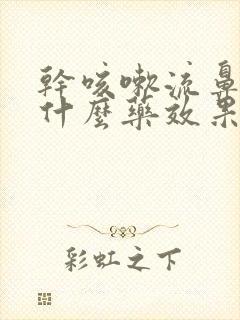 幹咳嗽流鼻
什麼藥效果
彩虹之下